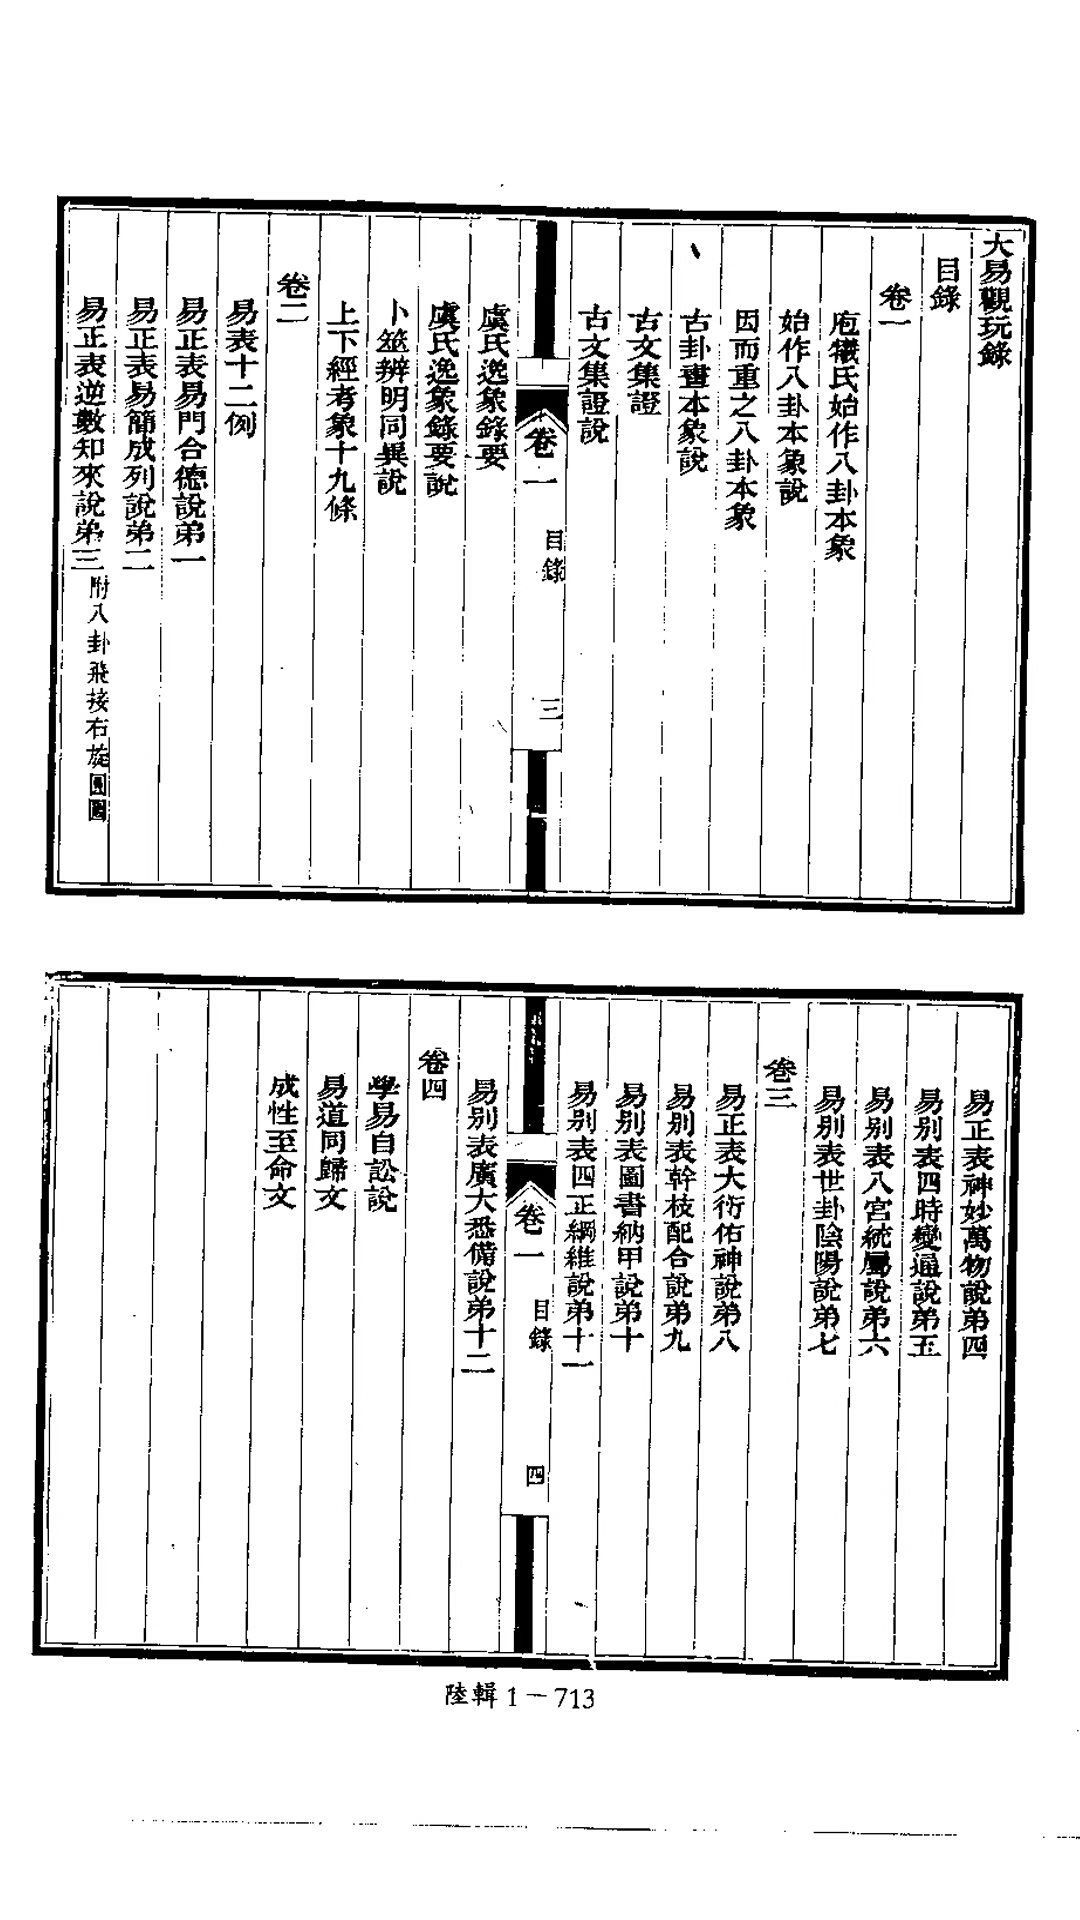 大易觀玩錄
目錄
卷一
庖犧氏始作八卦本象
始作八卦本象說
因而重之八卦本象
古卦畫本象說
古文集證
古文集證說
卷一
目錄
三
虞氏逸象錄要
虞氏逸象錄要說
卜筮辨明同異說
上下經考象十九條
卷二
易表十二例
易正表易門合德說弟一
易正表易簡成列說弟二
易正表逆數知來說弟三 附八卦飛接右旋圓圖
易正表神妙萬物說弟四
易別表四時變通說弟五
易別表八宮統屬說弟六
易別表世卦陰陽說弟七
卷三
易正表大衍佑神說弟八
易別表幹枝配合說弟九
易別表圖書納甲說弟十
易別表四正綱維說弟十一
卷一
目錄
四
易別表廣大悉備說弟十二
卷四
學易自訟說
易道同歸文
成性至命文
陸輯 1－713